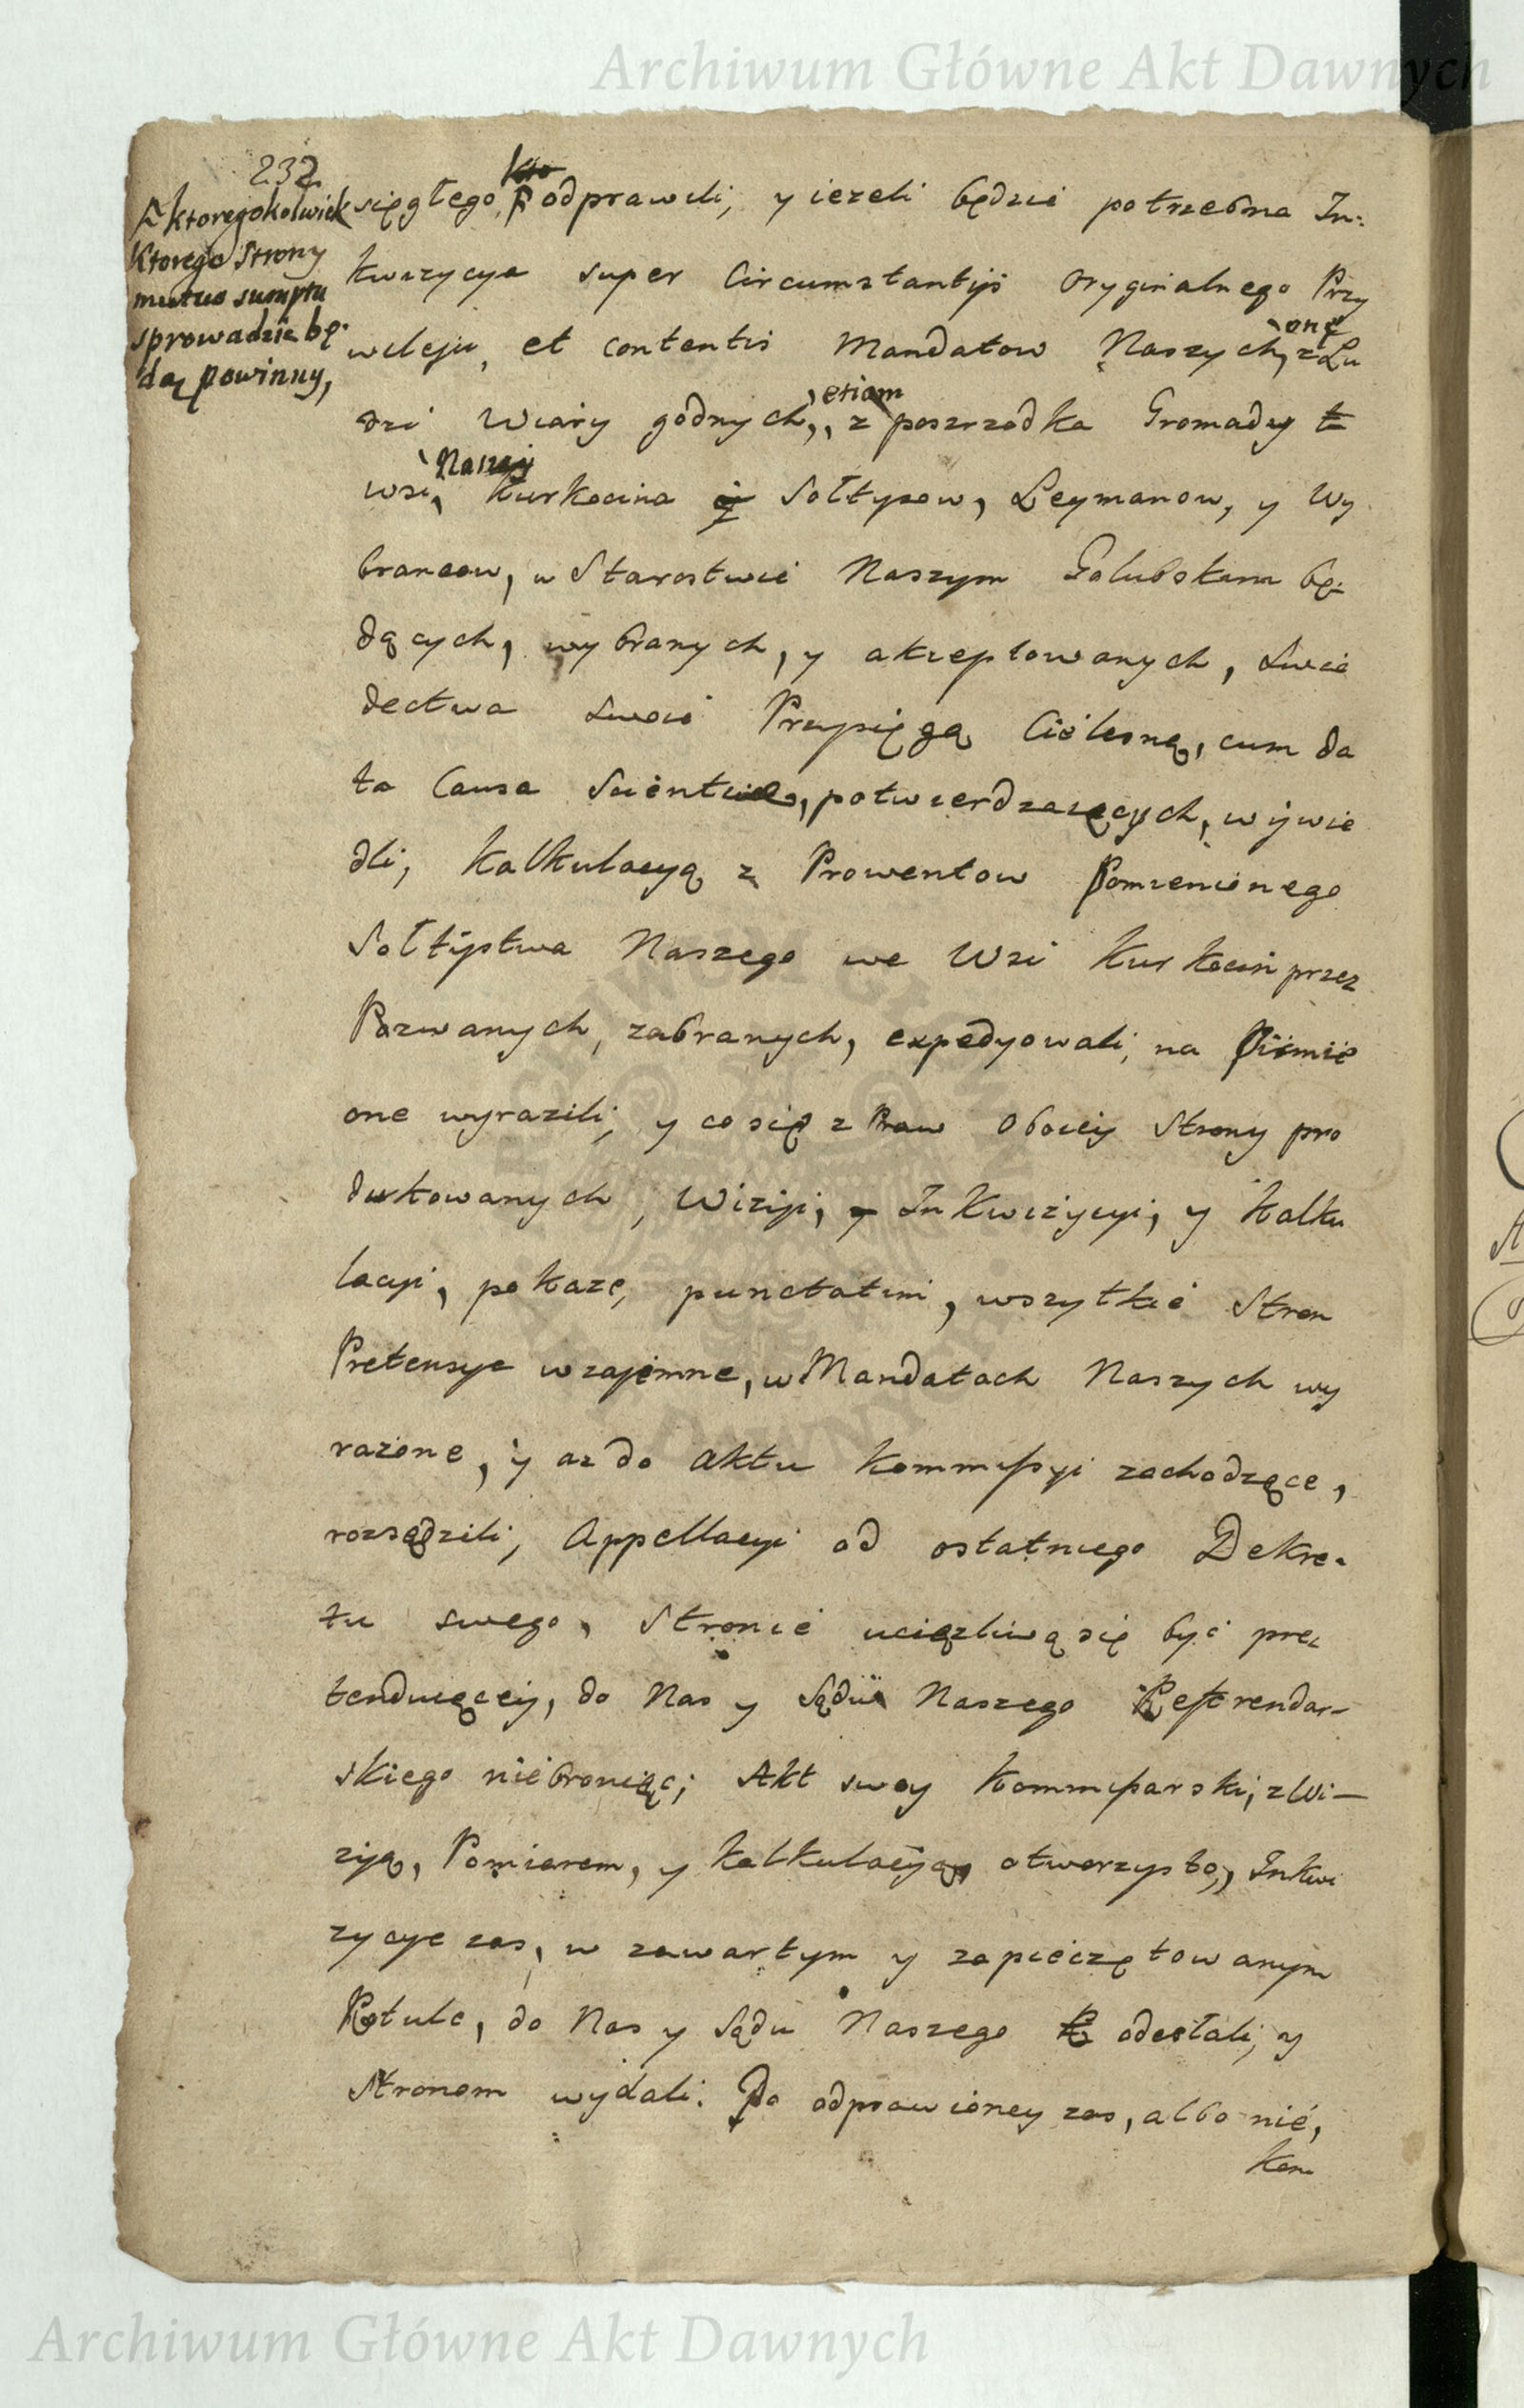 Archiwum Główne Akt Dawnych
232
ktoregokolwiek
ktorego Strony
mutuo sumptu
sprowadzić bę
dą powinny,
sięgłego, odprawili, y iezeli będzie potrzebna In:
kwizycya super Circumstantijs oryginalnego Przy
wileju, et contentis Mandatow Naszych, onę z Lu
dzi Wiary godnych, etiam z poszrzodka Gromady
wsi, Naszey Kurkocina Sołtysow, Leymanow, y Wy
brancow, w Starostwie Naszym Golubskim bę-
dących, wybranych, y akceptowanych, Swia
dectwa Swoie Przysięgą Cielesną, cum da
ta Causa Scientiae, potwierdzaiących, wywie
dli, Kalkulacyą z Prowentow Pomienionego
Sołtystwa Naszego we Wsi Kurkocin przez
Pozwanych, zabranych, expedyowali, na Pismie
one wyrazili, y co się z Praw Oboiey Strony pro
dukowanych, Wizyi, Inkwizycyi, y Kalku
lacyi, pokaze, punctatim, wszytkie Stron
Pretensye wzajemne, w Mandatach Naszych wy
razone, y az do aktu Kommissyi zachodzące,
rozsądzili, Appellacyi od ostatniego Dekre-
tu swego, Stronie uciązliwą się być pre-
tenduiącey, do Nas y Sądu Naszego Referendar-
skiego niebroniąc; Akt swoy Kommissarski, z Wi-
zyą, Pomiarem, y Kalkulacyą, otworzysto, Inkwi
zycye zas, w zawartym y zapieczętowanym
Rotule, do Nas y Sądu Naszego odesłali, y
Stronom wydali. Po odprawioney zas, albo nie,
Kom
Archiwum Główne Akt Dawnych